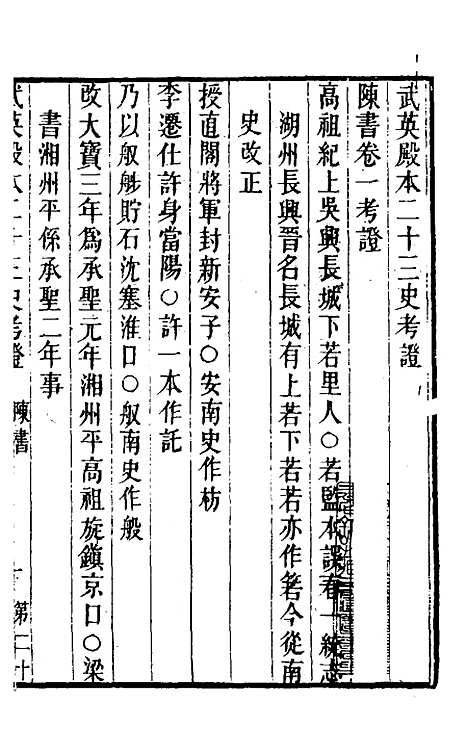 武英殿本二十三史考證
陳書卷一考證
高祖紀上吳興長城下若里人○若監本誤春一統志
湖州長興晉名長城有上若下若若亦作箬今從南
史改正
授直閣將軍封新安子○安南史作枋
李遷仕許身當陽○許一本作託
乃以㕠艀貯石沈塞淮口○㕠南史作般
改大寶三年爲承聖元年湘州平高祖旋鎭京口○梁
書湘州平係承聖二年事
武英殿本二十三史考證 陳書 第二十